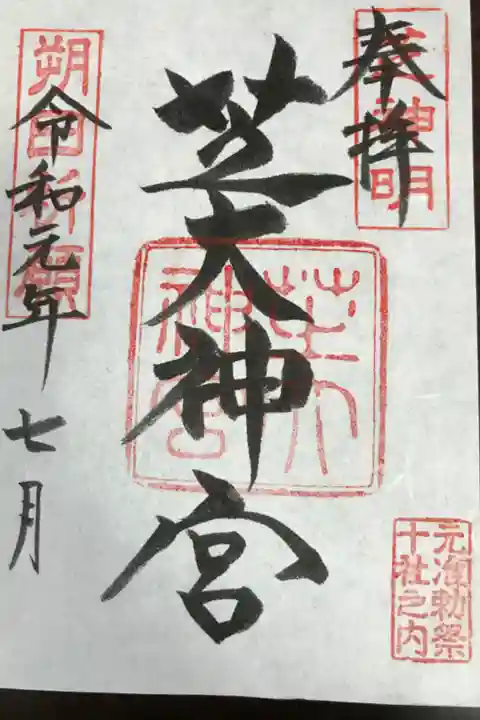 奉拝
芝神明
芝大神宮
芝大
神宮
元准勅祭
十社之内
朔日祈願
令和元年七月